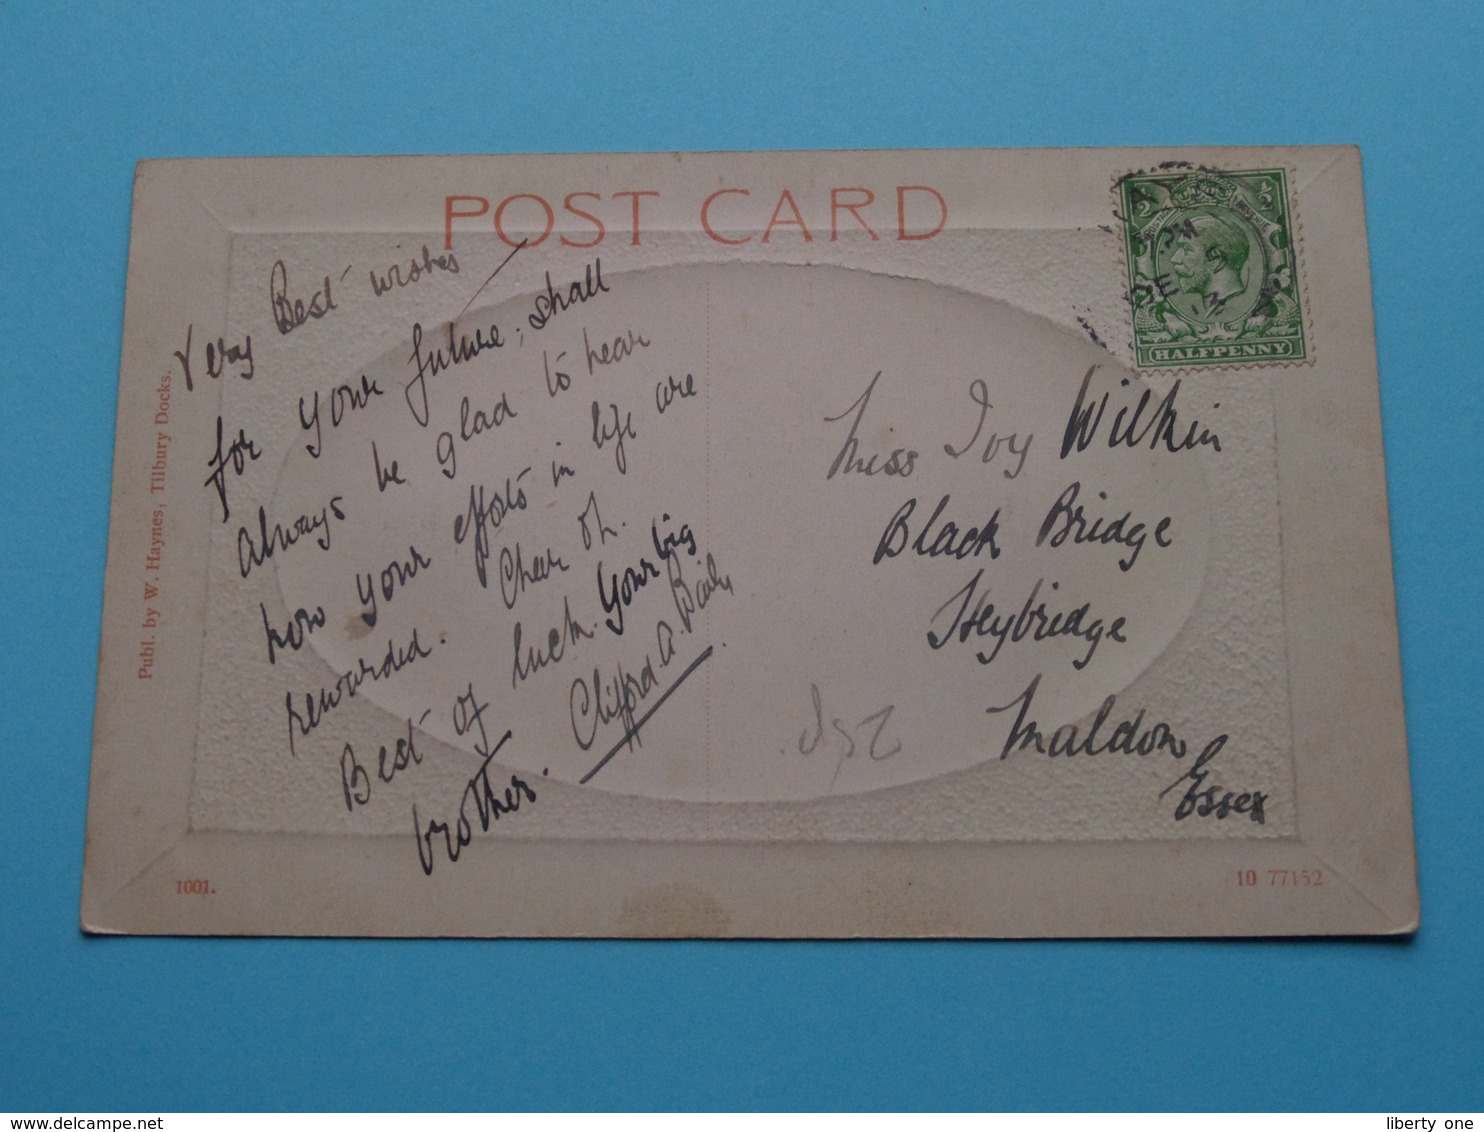 POST CARD
Very Best wishes
for your future; shall
always be glad to hear
how your efforts in life are
rewarded. Cheer oh.
Best of luck. Your big
brother. Clifford. A.
Miss Joy Wilkin
Black Bridge
Heybridge
Maldon
Essex
HALFPENNY
5 PM
DE
Publ. by W. Haynes, Tilbury Docks.
1001.
10 77152
liberty one